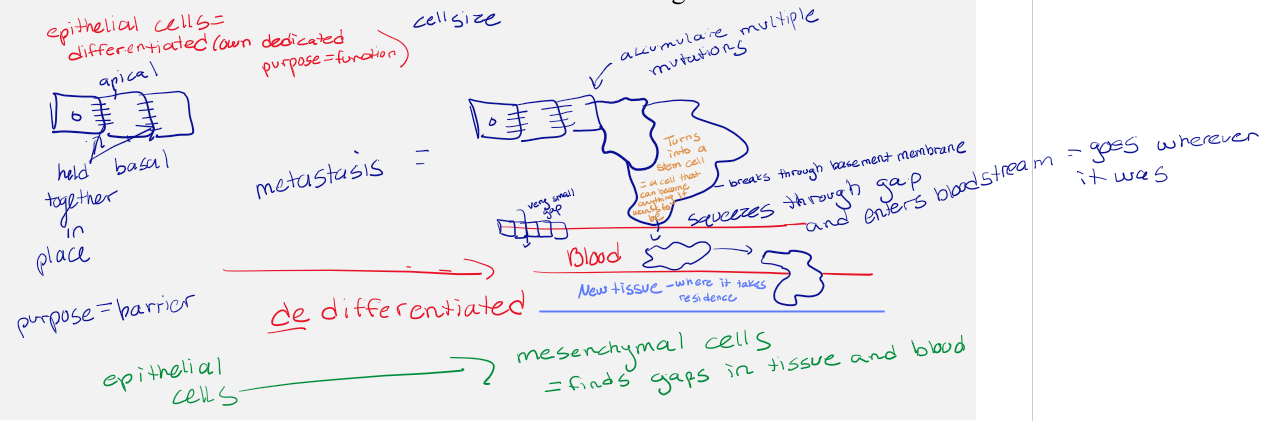 epithelial cells=
differentiated (own dedicated
purpose=function)
apical
held basal
together
in
place
purpose=barrier
cell size
metastasis =
accumulaire multiple
mutations
Turns
into a
stem cell
= a cell that
can become
anything it
wants to
be
- breaks through basement membrane
squeezes through gap
and enters bloodstream = goes wherever
it was
very small
gap
Blood
New tissue - where it takes
residence
de differentiated
epithelial
cells
mesenchymal cells
= finds gaps in tissue and blood